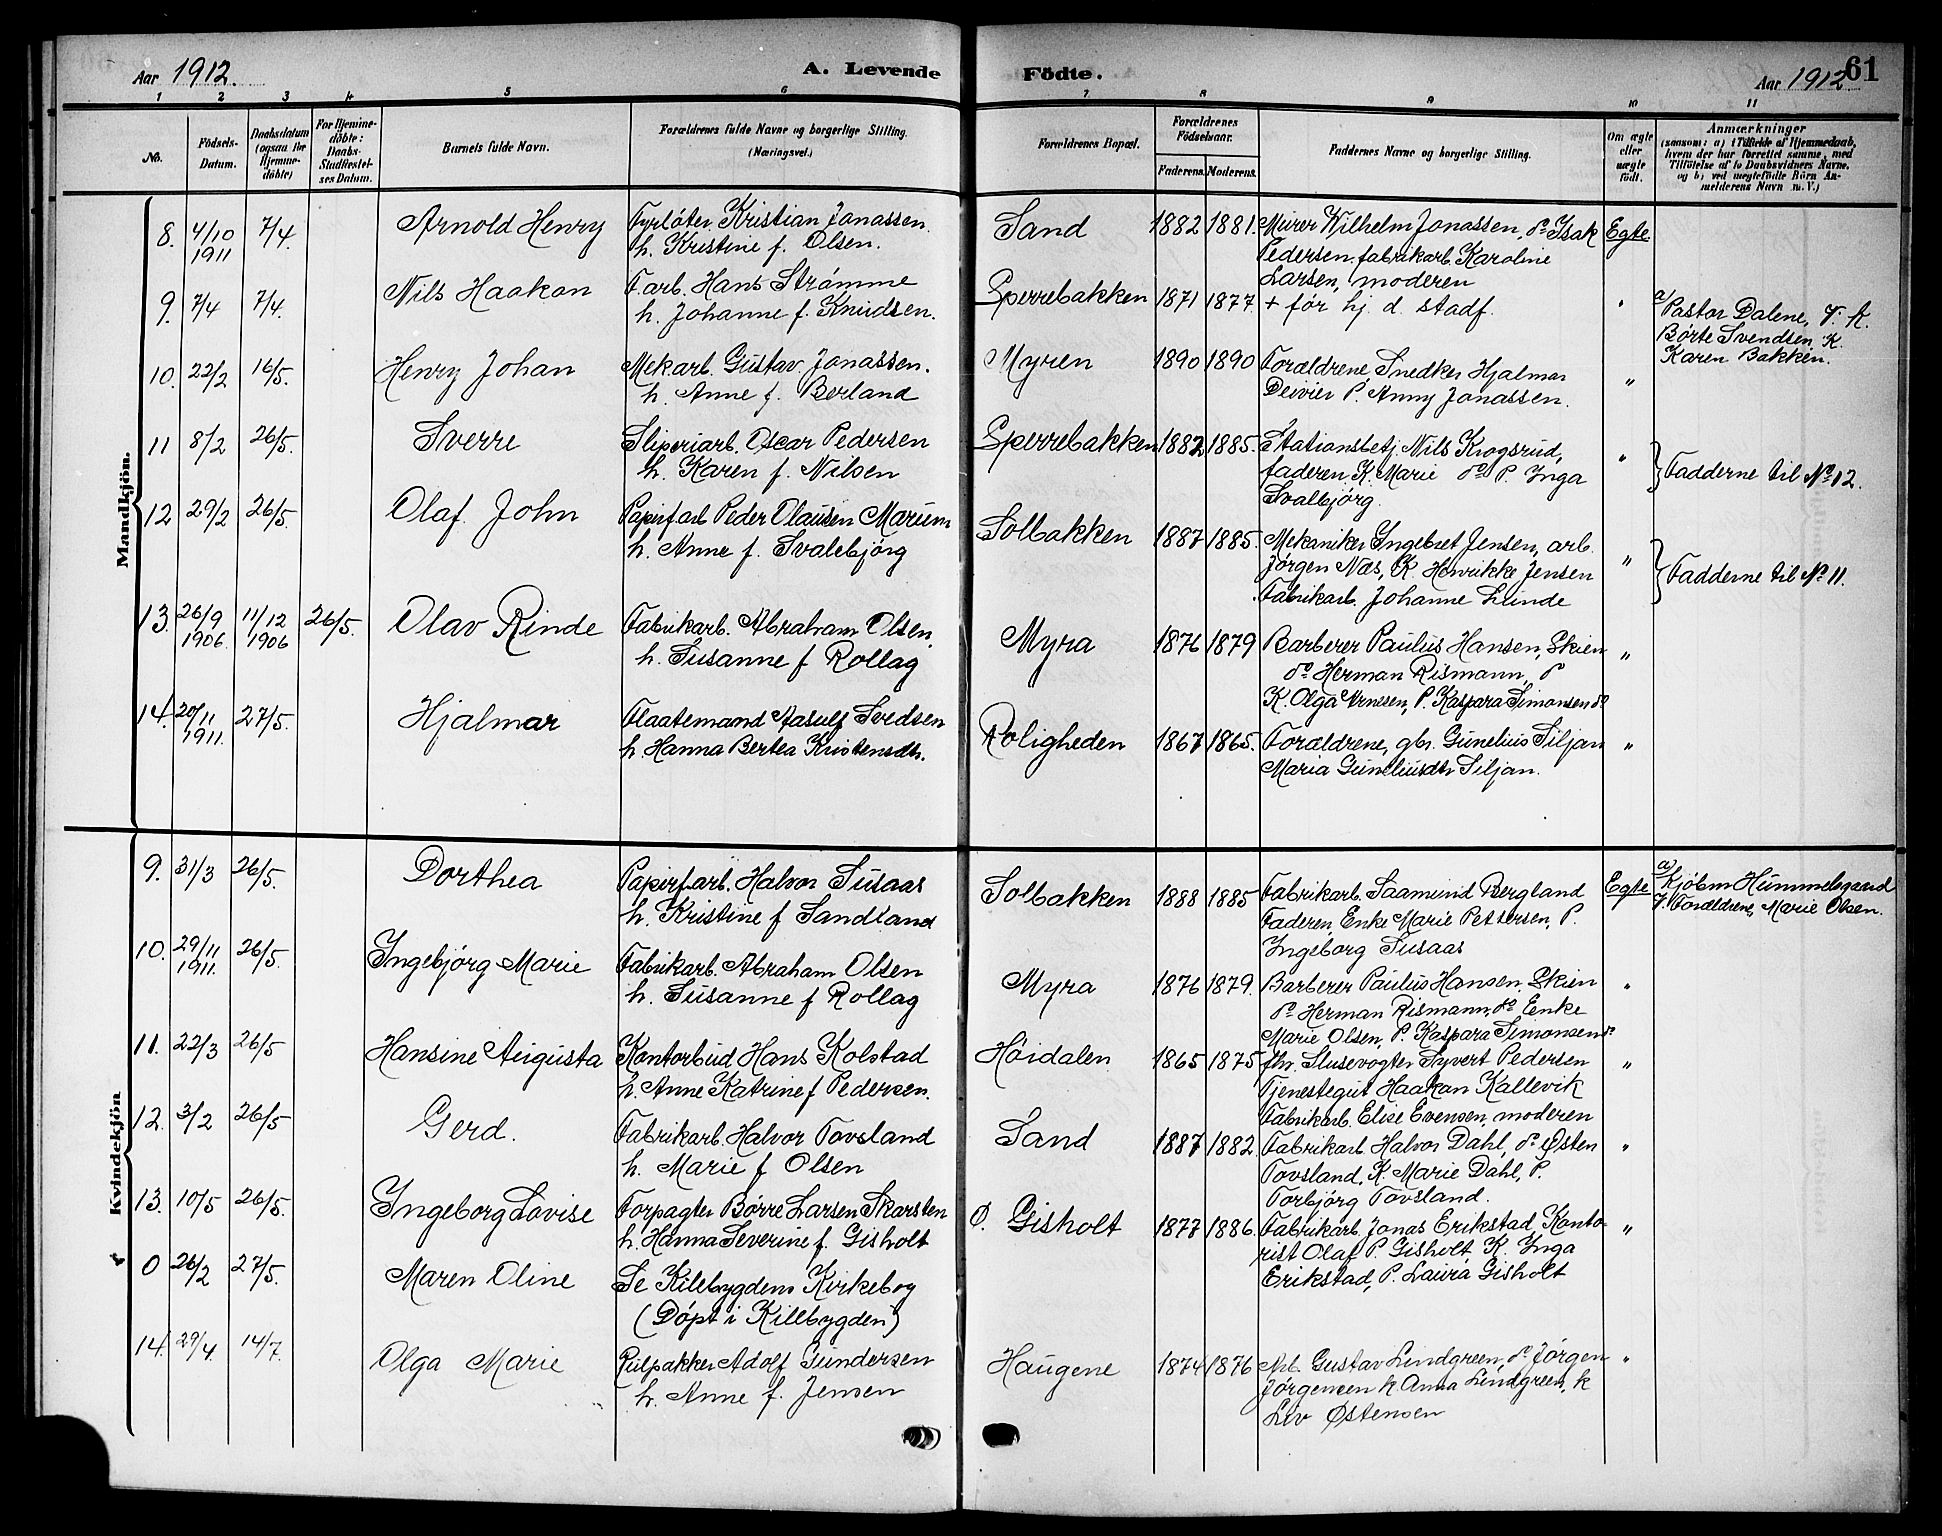 Aar 1912.
A. Levende
1 2 3 4 5 6
No.
Födsels-
Datum.
Daabsdatum
(ogsaa for
Hjemme-
döbte)
For Hjemme-
döbte:
Daabs-
Stadfæstel-
ses Datum.
Barnets fulde Navn.
Forældrenes fulde Navne og borgerlige Stilling.
(Næringsvei.)
Mandkjön.
8. 4/10 1911 7/4. Arnold Henry Fyrböter Kristian Jonassen.
h. Kristine f. Olsen.
9. 7/4 7/4. Nils Haakon F.arb. Hans Strømme
h. Johanne f. Knudsen.
10. 22/2 16/5. Henry Johan Mekarb. Gustav Jonassen.
h. Anne f. Berland
11 8/2 26/5. Sverre Sliperiarb. Oscar Pedersen
h. Karen f. Nilsen
12 29/2 26/5. Olaf John Papirf.arb Peder Olausen Marum
h. Anne f. Svalebjörg
13. 26/9 1906. 11/12 1906 26/5. Olav Rinde Fabrikarb. Abraham Olsen.
h. Susanne f Rollag
14. 20/11 1911. 27/5. Hjalmar Flaatemand Aasulf Svedsen
h. Hanna Bertea Kristensdtr.
Kvindekjön
9. 31/3 26/5. Dorthea Papirf.arb. Halvor Susaas
h. Kristine f Sandland
10. 29/11 1911. 26/5. Ingebjörg Marie Fabrikarb. Abraham Olsen
h. Susanne f Rollag
11. 22/3 26/5 Hansine Augusta Kontorbud Hans Kolstad
h. Anne Katrine f Pedersen.
12. 3/2 26/5 Gerd. Fabrikarb. Halvor Tovsland
h. Marie f Olsen
13. 10/5 26/5. Ingeborg Lovise Forpagter Börre Larsen Skarsten
h. Hanna Severine f. Gisholt
0 26/2 27/5. Maren Oline Se Kilebygdens Kirkebog
(Döpt i Kilebygden)
14. 29/4. 14/7. Olga Marie Pulpakker Adolf Gundersen
h. Anne f. Jensen
Födte.
Aar 1912
61
7 8 9 10 11
Forældrenes Bopæl.
Forældrenes
Födselsaar.
Faderens. Moderens.
Faddernes Navne og borgerlige Stilling.
Om ægte
eller
uægte
födt.
Anmærkninger
(saasom: a) i Tilfælde af Hjemmedaab,
hvem der har forrettet samme, med
Tilföielse af to Daabsvidners Navne,
og b) ved uægtefödte Börn An-
melderens Navn m. V.)
Sand 1882 1881. Murer Wilhelm Jonassen, do Isak Egte
Pedersen, fabrikarb. Karoline
Larsen, moderen
Sperrebakken 1871 1877. + før hj. d. stadf. "
a) Pastor Dalene, V. K.
Børte Svendsen, K.
Karen Bakken.
Myren 1890 1890 Forældrene Snedker Hjalmar "
P. Anny Jonassen.
Sperrebakken 1882 1885. Stationsbetj. Nils Krogsrud, "
faderen, K. Marie do P. Inga
Svalbjörg.
} Fadderne til No 12.
Solbakken 1887 1885. Mekaniker Ingebret Jensen, arb. "
Jörgen Næs, K. Henrikke Jensen
Fabrikarb. Johanne Lunde
} Fadderne til No 11.
Myra 1876 1879 Barberer Paulus Hansen, Skien "
do Herman Rismann, P
K. Olga Arnesen, P. Kaspara Simonsen do
Roligheden 1867 1865. Forældrene, gbr. Gunelius Siljan "
Maria Guneliusdtr Siljan.
Solbakken 1888 1885 Fabrikarb. Saamund Bergland Egte
Faderen, Enke Marie Pettersen, P.
Ingeborg Susaas
a) Kjöbm Hummelsgaard
V. Forældrene, Marie Olsen.
Myra 1876 1879. Barberer Paulus Hansen, Skien "
do Herman Rismann, do Enke
Marie Olsen, P. Kaspara Simonsen do
Höidalen 1865 1875 fhv. Slusevogter Syvert Pedersen "
Tjenestegut Haakon Kallevik
Fabrikarb. Elise Evensen, moderen
Sand 1887 1882. Fabrikarb Halvor Dahl, do Østen "
Tovsland, K. Marie Dahl, P.
Torbjörg Tovsland.
Ö. Gisholt 1877 1886. Fabrikarb. Jonas Erikstad, Konto- "
rist Olaf P. Gisholt K. Inga
Erikstad, P. Laura Gisholt
Haugene 1874 1876 Arb. Gustav Lindgreen, do Jörgen "
Jörgensen K. Anna Lindgreen, K
Liv Østensen